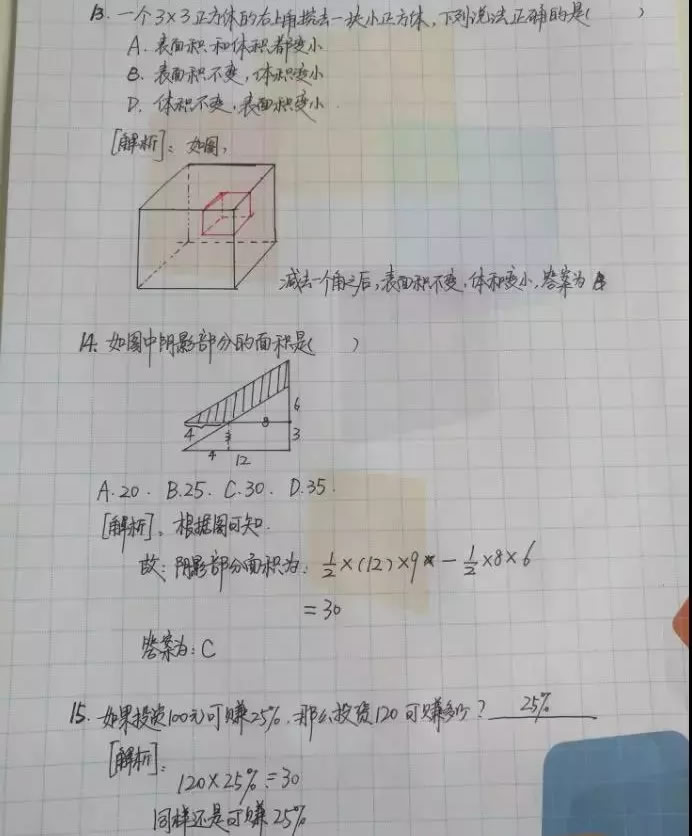 13. 一个3×3正方体的右上角挖去一块小正方体,下列说法正确的是( )
A. 表面积和体积都变小
B. 表面积不变,体积变小
D. 体积不变,表面积变小.
[解析]: 如图,
减去一个角之后,表面积不变,体积变小,答案为
14. 如图中阴影部分的面积是( )
6
4 8
3
4 12
A.20. B.25. C.30. D.35.
[解析]. 根据图可知.
故: 阴影部分面积为: 1/2×(12)×9 - 1/2×8×6
=30
答案为: C
15. 如果投资100元可赚25%,那么投资120可赚多少? 25%
[解析]:
120×25%=30
同样还是可赚25%